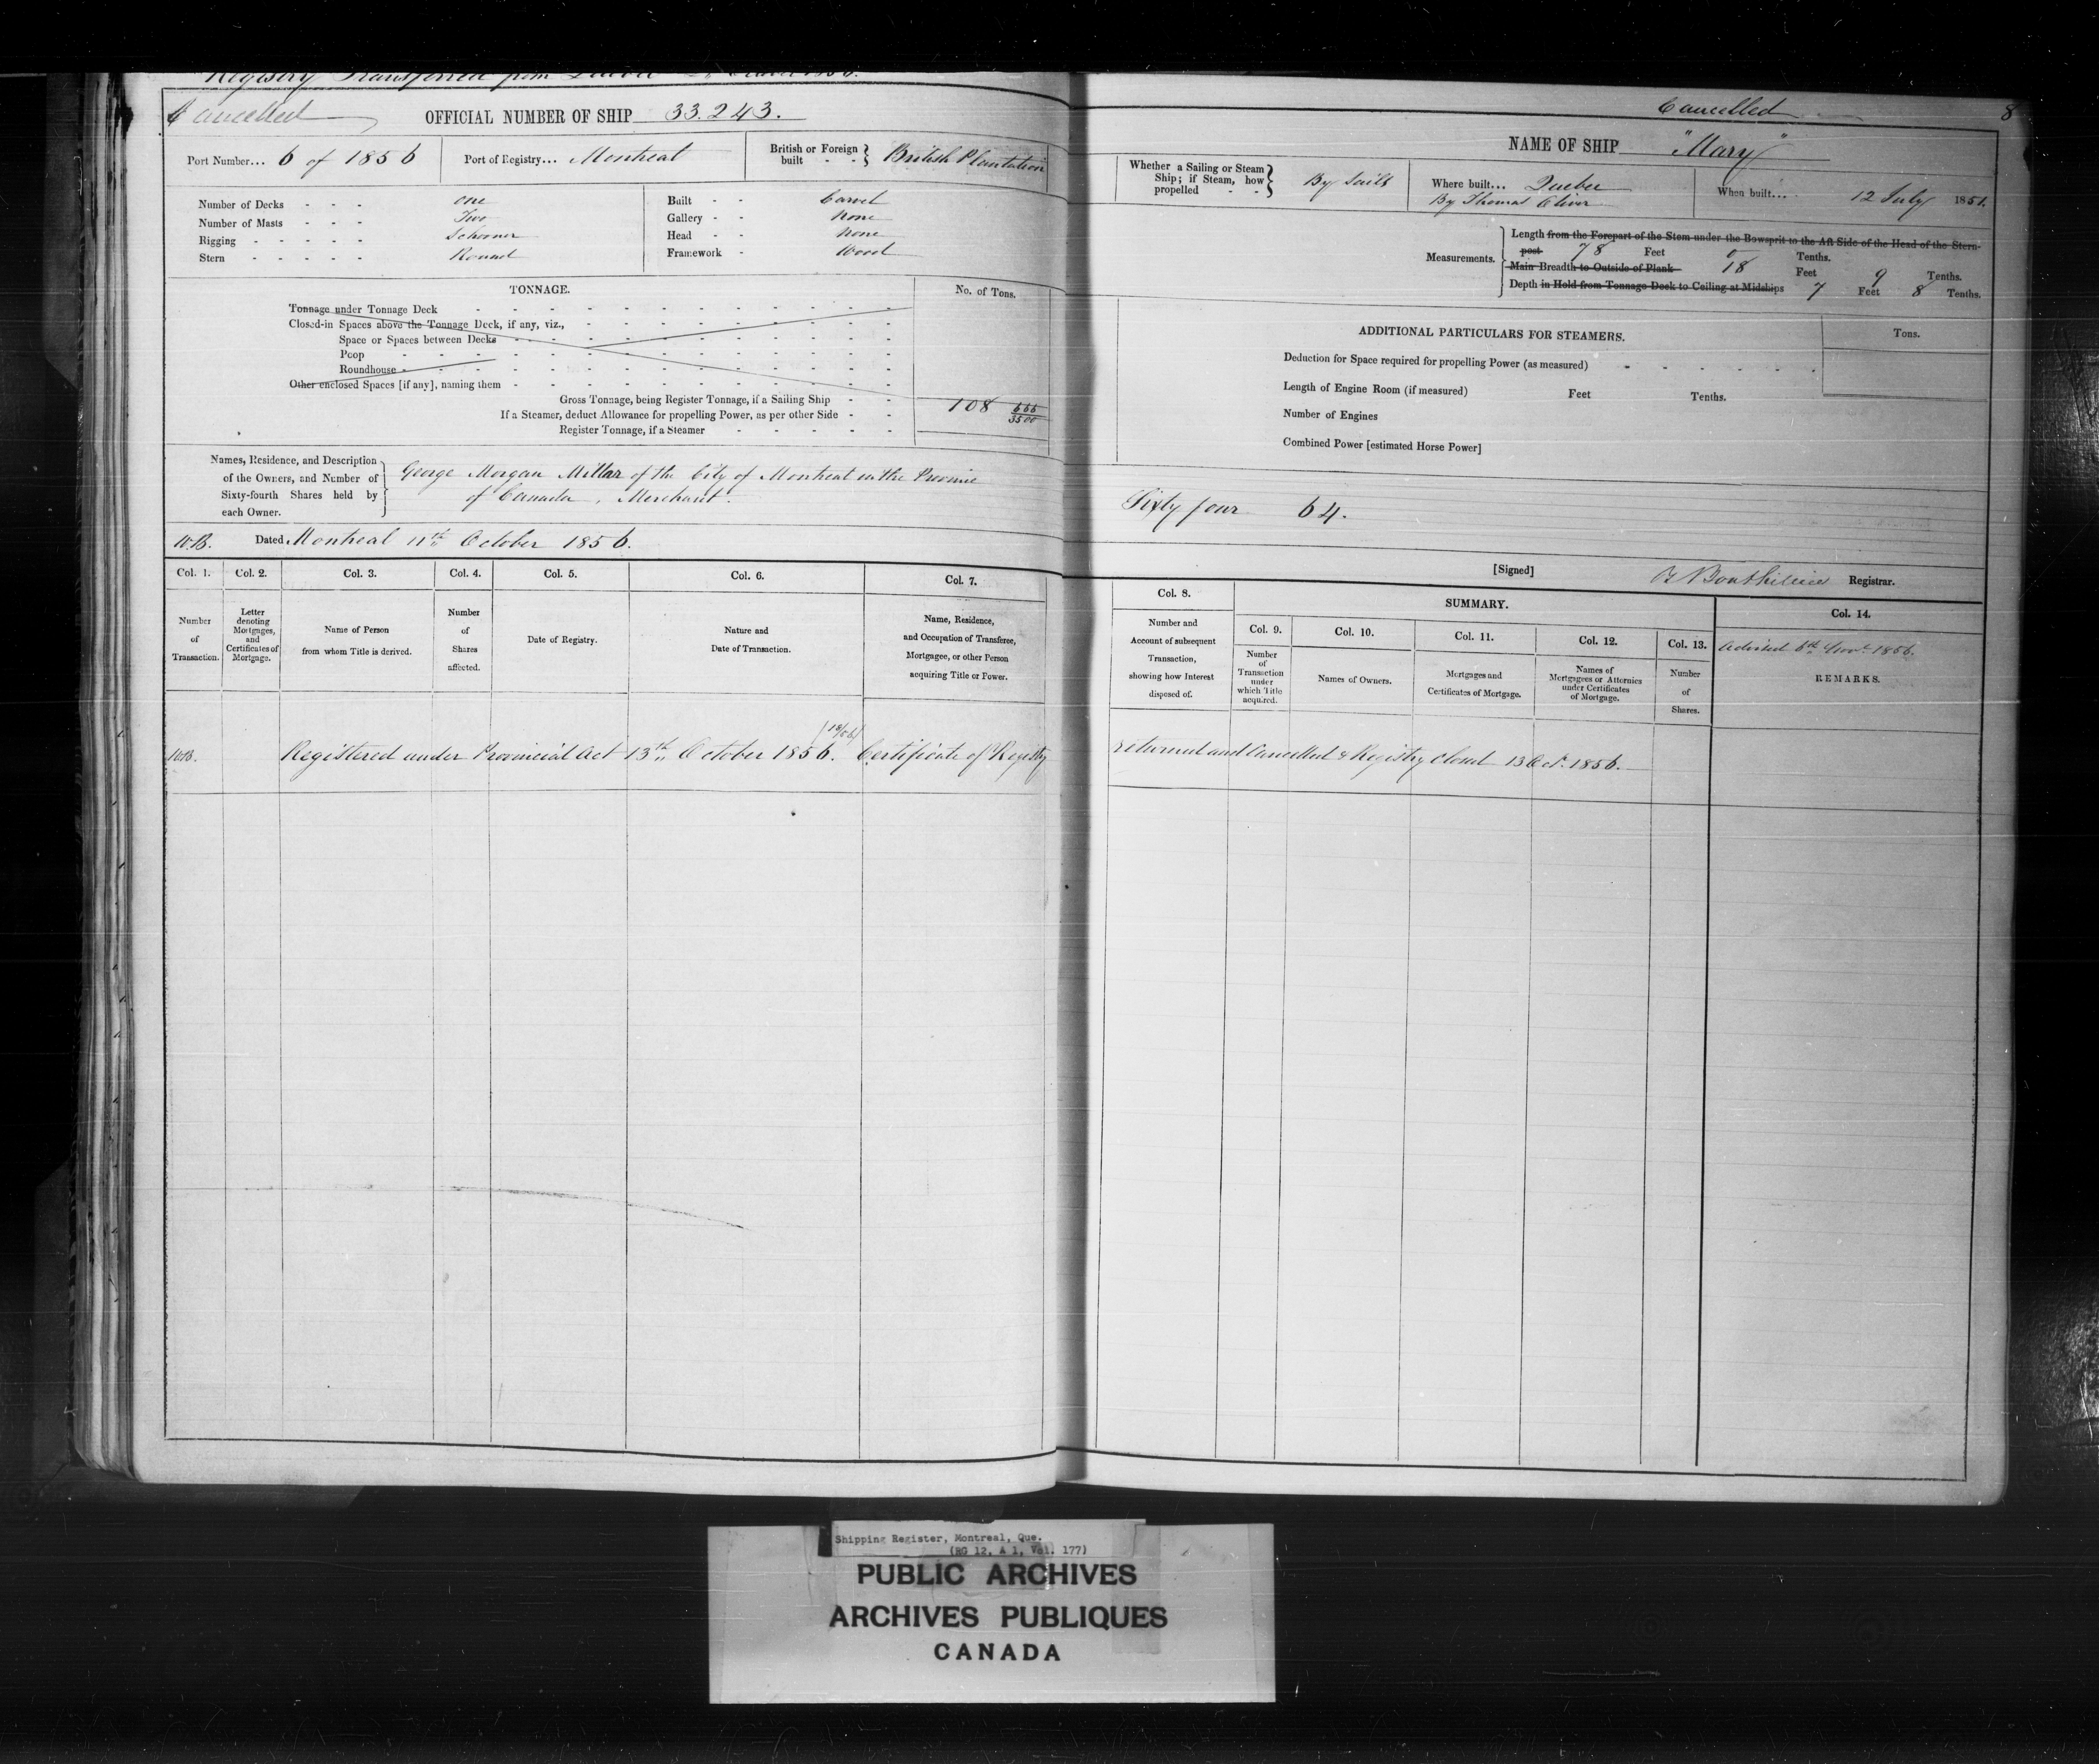 Registry Transferred from
Cancelled
OFFICIAL NUMBER OF SHIP 33.243.
Port Number... 6 of 1856
Port of Registry... Montreal
British or Foreign built - - } British Plantation
Number of Decks - - - One
Number of Masts - - - Two
Rigging - - - - - Schooner
Stern - - - - - Round
Built - - Carvel
Gallery - - None
Head - - None
Framework - Wood
TONNAGE.
No. of Tons.
Tonnage under Tonnage Deck
Closed-in Spaces above the Tonnage Deck, if any, viz.,
Space or Spaces between Decks
Poop
Roundhouse
Other enclosed Spaces [if any], naming them
Gross Tonnage, being Register Tonnage, if a Sailing Ship
108 666/3500
If a Steamer, deduct Allowance for propelling Power, as per other Side
Register Tonnage, if a Steamer
Names, Residence, and Description
of the Owners, and Number of
Sixty-fourth Shares held by
each Owner.
George Morgan Millar of the City of Montreal in the Province
of Canada, Merchant.
W.B. Dated Montreal 11th October 1856.
Col. 1.
Number
of
Transaction.
Col. 2.
Letter
denoting
Mortgages,
and
Certificates of
Mortgage.
Col. 3.
Name of Person
from whom Title is derived.
Col. 4.
Number
of
Shares
affected.
Col. 5.
Date of Registry.
Col. 6.
Nature and
Date of Transaction.
Col. 7.
Name, Residence,
and Occupation of Transferee,
Mortgagee, or other Person
acquiring Title or Power.
W.B. Registered under Provincial Act 13th October 1856. Certificate of Registry
Cancelled
8
NAME OF SHIP "Mary"
Whether a Sailing or Steam
Ship; if Steam, how
propelled - - } By Sails
Where built... Quebec
By Thomas Oliver
When built... 12 July 1851.
Measurements.
Length from the Forepart of the Stem under the Bowsprit to the Aft Side of the Head of the Stern-
post 78 Feet 0 Tenths.
Main Breadth to Outside of Plank 18 Feet 9 Tenths.
Depth in Hold from Tonnage Deck to Ceiling at Midships 7 Feet 8 Tenths.
ADDITIONAL PARTICULARS FOR STEAMERS.
Tons.
Deduction for Space required for propelling Power (as measured)
Length of Engine Room (if measured) Feet Tenths.
Number of Engines
Combined Power [estimated Horse Power]
Sixty four 64.
[Signed] Bouthillier Registrar.
Col. 8.
Number and
Account of subsequent
Transaction,
showing how Interest
disposed of.
SUMMARY.
Col. 9.
Number
of
Transaction
under
which Title
acquired.
Col. 10.
Names of Owners.
Col. 11.
Mortgages and
Certificates of Mortgage.
Col. 12.
Names of
Mortgagees or Attornies
under Certificates
of Mortgage.
Col. 13.
Number
of
Shares.
Col. 14.
Advised 6th Novr 1856.
REMARKS.
returned and Cancelled & Registry Closed 13 Oct. 1856.
Shipping Register, Montreal, Que.
(RG 12, A 1, Vol. 177)
PUBLIC ARCHIVES
ARCHIVES PUBLIQUES
CANADA